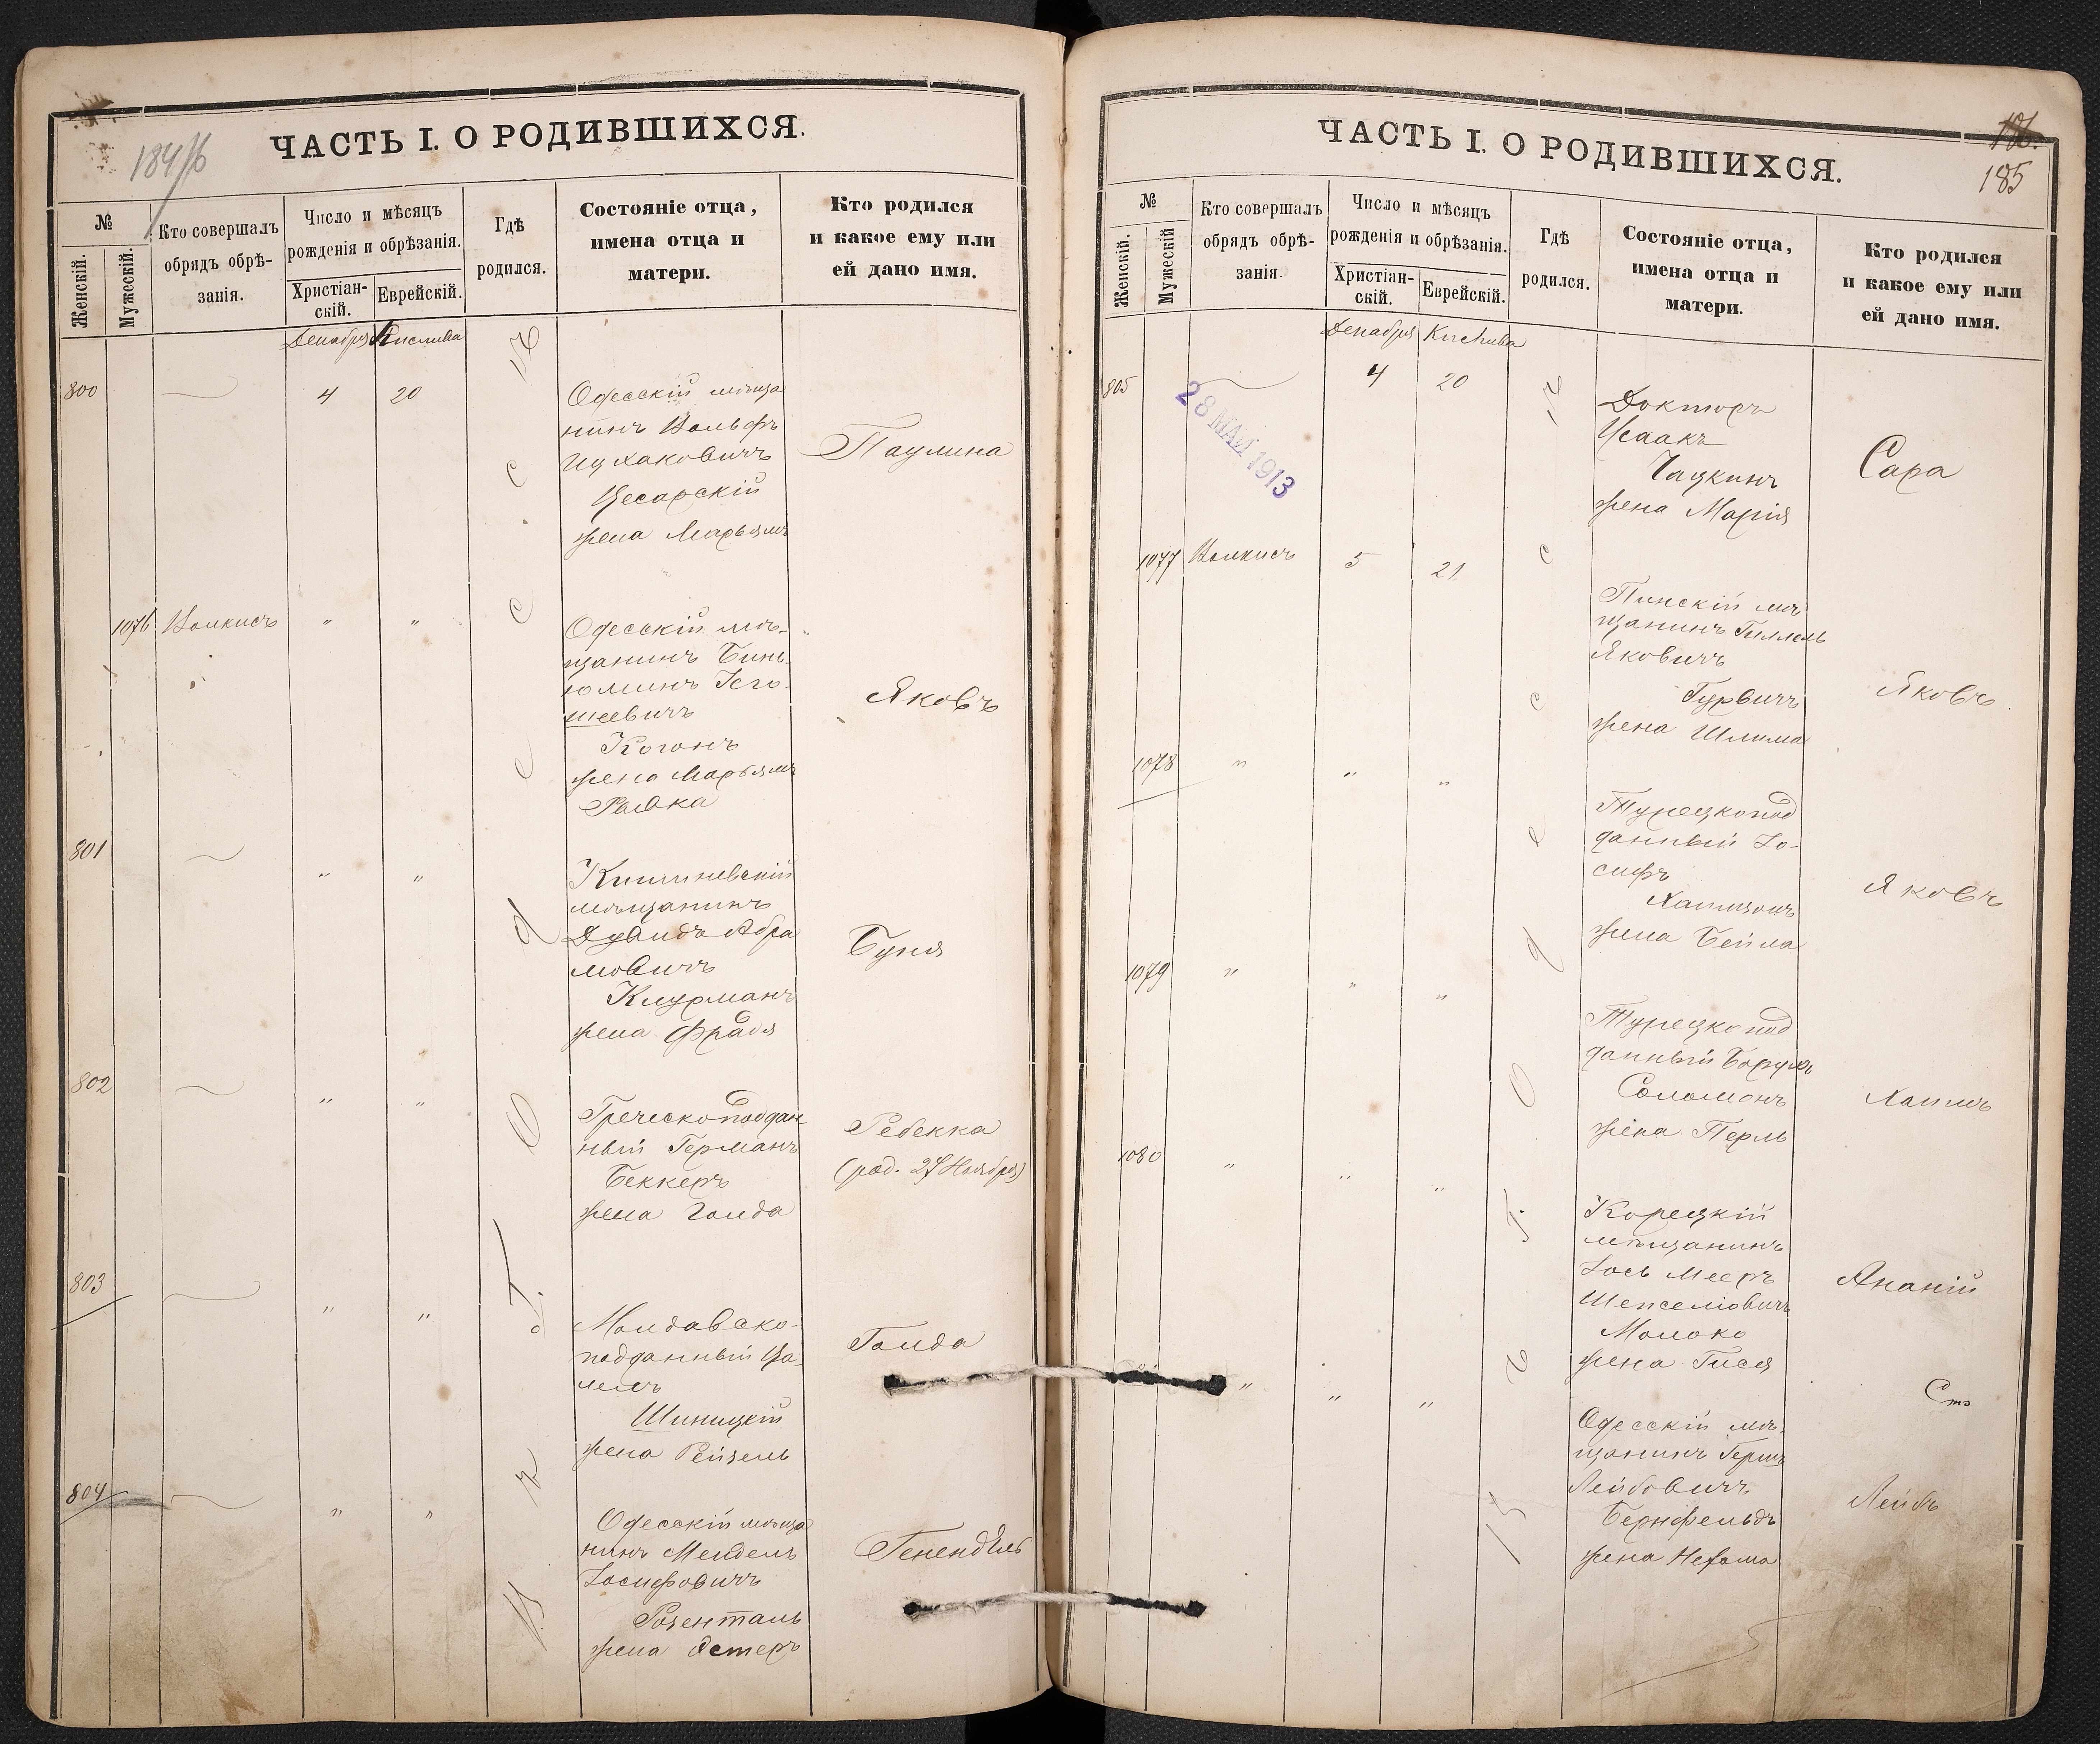 184/б
ЧАСТЬ I. О РОДИВШИХСЯ.
№
Женскій.
Мужескій.
Кто совершалъ
обрядъ обрѣ-
занія.
Число и мѣсяцъ
рожденія и обрѣзанія.
Христіан-
скій.
Еврейскій.
Гдѣ
родился.
Состояніе отца,
имена отца и
матери.
Кто родился
и какое ему или
ей дано имя.
Декабря Кислива
въ г. Одессѣ
800
4
20
Одесскій мѣща
нинъ Вольфъ
Ицхаковичъ
Цесарскій
жена Марьямъ
Паулина
1076
Волкисъ
"
"
Одесскій мѣ-
щанинъ Бинь-
юминъ Іего-
шеевичъ
Когонъ
жена Марьямъ
Рашка
Яковъ
801
"
"
Кишиневскій
мѣщанинъ
Дувидъ Абра
мовичъ
Клурманъ
жена Фрадя
Буня
802
"
"
Греческоподдан
ный Германъ
Беккеръ
жена Голда
Ребекка
(род. 27 Ноября)
803
"
"
Молдавско-
подданный Ца-
лелъ
Шиницкій
жена Рейзель
Голда
804
"
"
Одесскій мѣща
нинъ Мендель
Іосифовичъ
Розенталь
жена Эстеръ
Генендель
ЧАСТЬ I. О РОДИВШИХСЯ.
186.
185
№
Женскій.
Мужескій
Кто совершалъ
обрядъ обрѣ-
занія.
Число и мѣсяцъ
рожденія и обрѣзанія.
Христіан-
скій.
Еврейскій.
Гдѣ
родился.
Состояніе отца,
имена отца и
матери.
Кто родился
и какое ему или
ей дано имя.
Декабря Кислива
805
28 МАЙ 1913
4
20
Докторъ
Исаакъ
Чацкинъ
жена Марія
Сара
1077
Волкисъ
5
21
Пинскій мѣ
щанинъ Гиллель
Яковичъ
Гурвичъ
жена Шлима
Яковъ
1078
"
"
"
Турецкопод
данный Іо-
сифъ
жена Бейла
Яковъ
1079
"
"
"
Турецкопод
данный Борухъ
Соломонъ
жена Перль
Хаимъ
1080
"
"
"
Корецкій
мѣщанинъ
Іось Мееръ
Шепселіовичъ
Молоко
жена Гися
Ананій
"
"
"
Одесскій мѣ-
щанинъ Герш
Лейбовичъ
Бернфельдъ
жена Нехама
Лейбъ